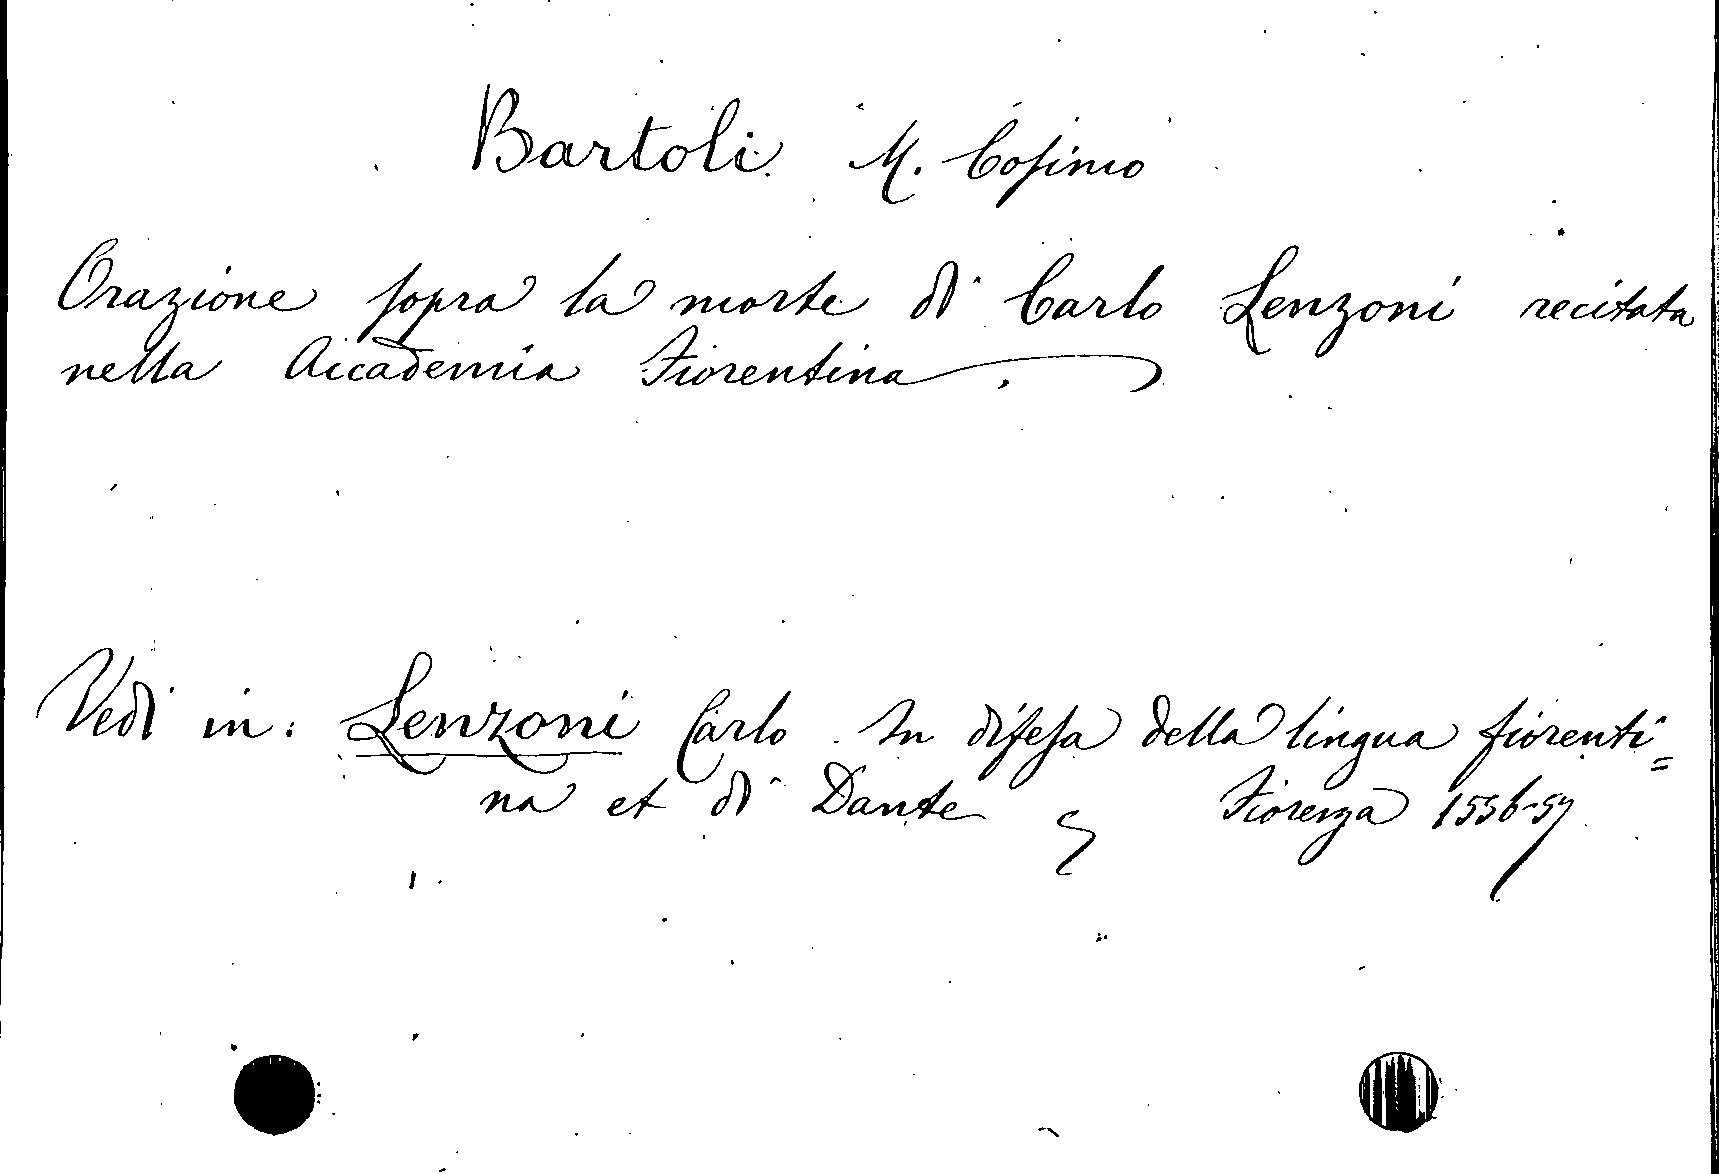 Bartoli M. Cosimo
Orazione sopra la morte di Carlo Lenzoni recitata
nella Accademia Fiorentina.
Vedi in: Lenzoni Carlo. In difesa della lingua fiorenti=
na et di Dante Fiorenza 1556-57